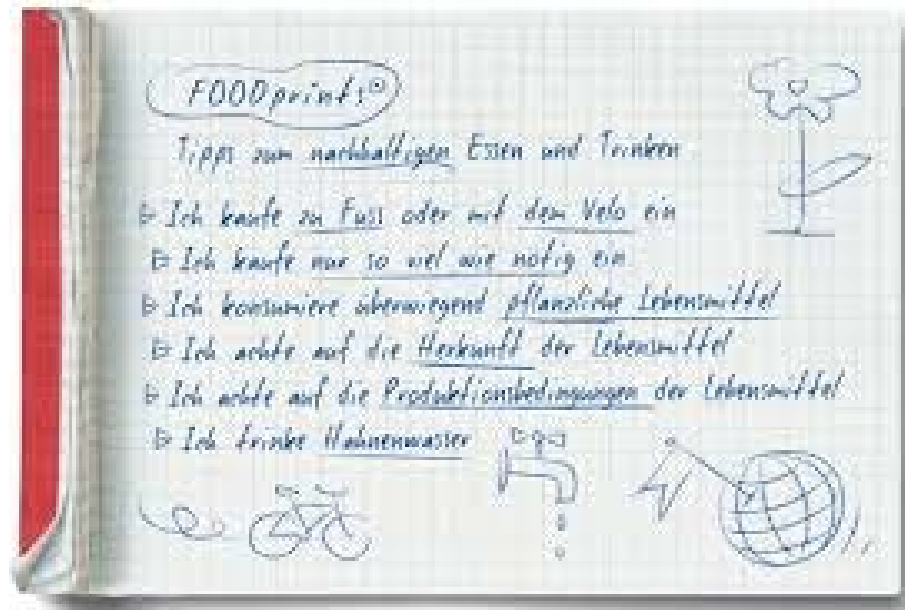 FOODprints®
Tipps zum nachhaltigen Essen und Trinken
Ich kaufe zu Fuss oder mit dem Velo ein
Ich kaufe nur so viel wie nötig ein
Ich konsumiere überwiegend pflanzliche Lebensmittel
Ich achte auf die Herkunft der Lebensmittel
Ich achte auf die Produktionsbedingungen der Lebensmittel
Ich trinke Hahnenwasser